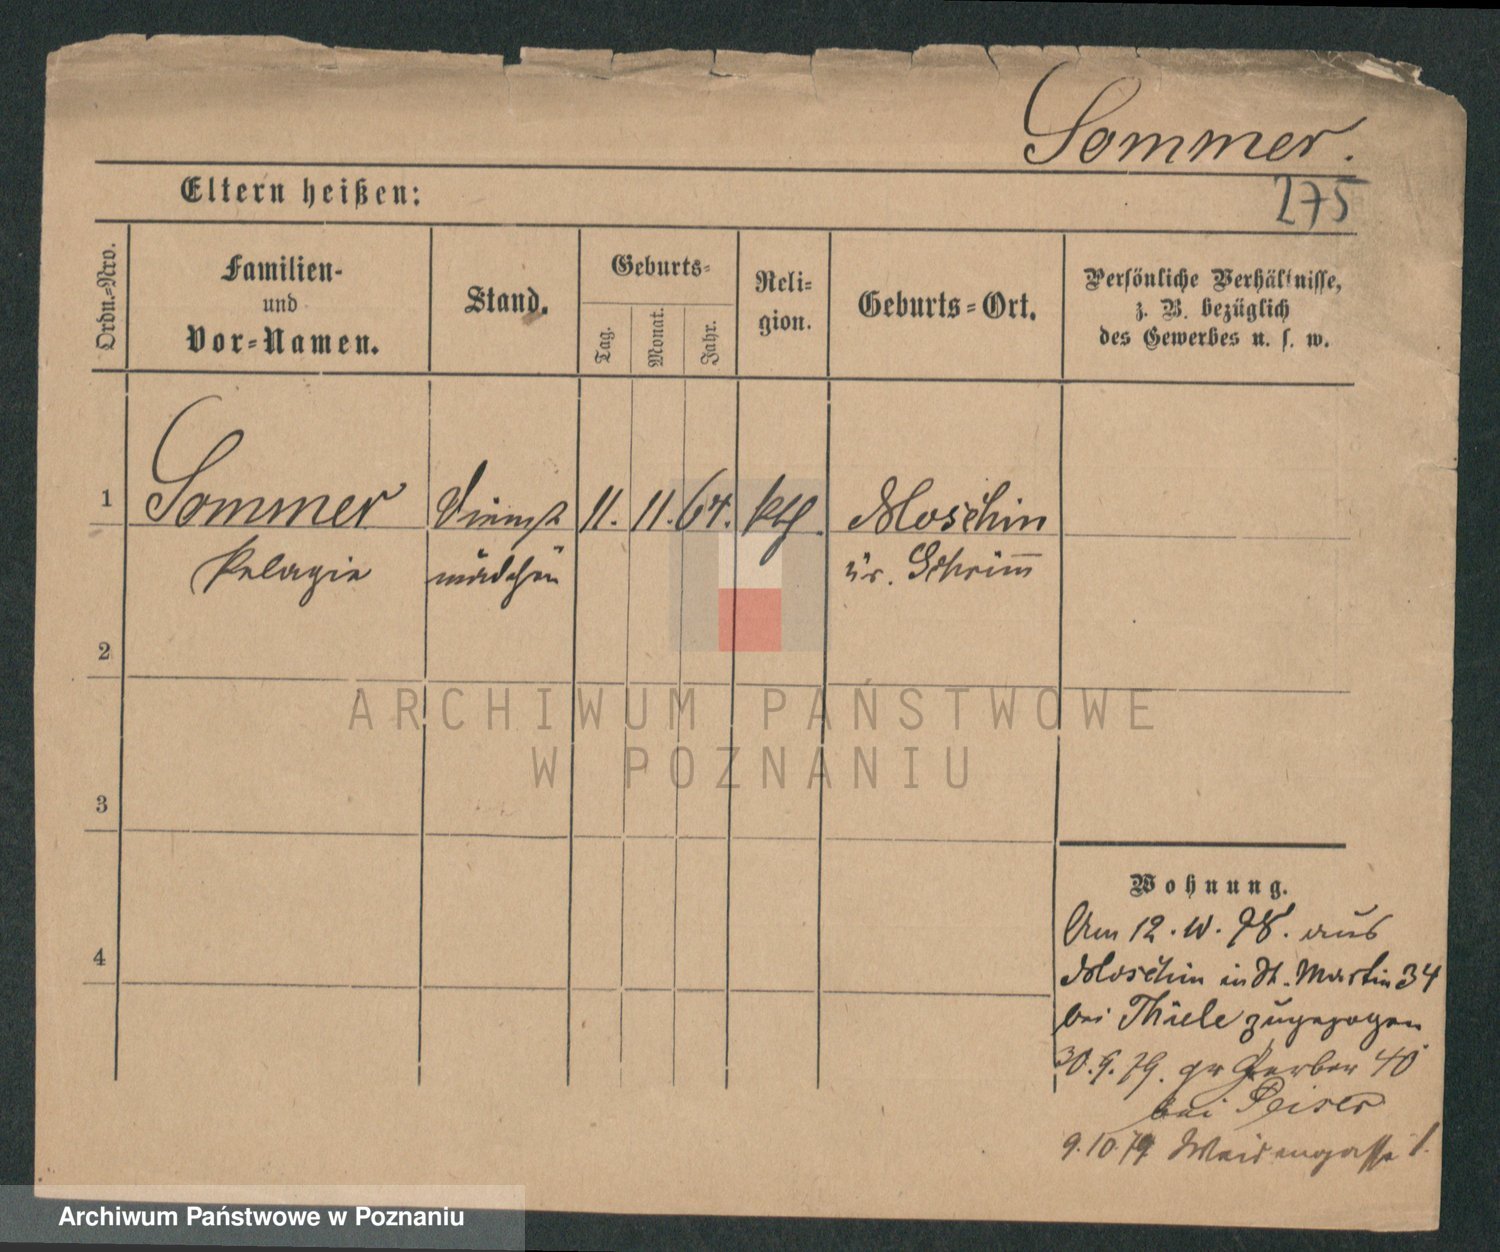 Sommer.
275
Eltern heißen:
Ordn.-Nro.
Familien-
und
Vor-Namen.
Stand.
Geburts-
Tag.
Monat.
Jahr.
Reli-
gion.
Geburts-Ort.
Persönliche Verhältnisse,
z. B. bezüglich
des Gewerbes u. s. w.
1
Sommer Dienst 11. 11. 64. kth. Moschin
Pelagie mädchen Kr. Schrimm
2
3
4
Wohnung.
Am 12. 10. 78. aus
Moschin in St. Martin 34
bei Thiele zugezogen
30.9.79. gr Gerber 40
bei Peiser
9.10.79 Weidengasse 1.
ARCHIWUM PAŃSTWOWE
W POZNANIU
Archiwum Państwowe w Poznaniu